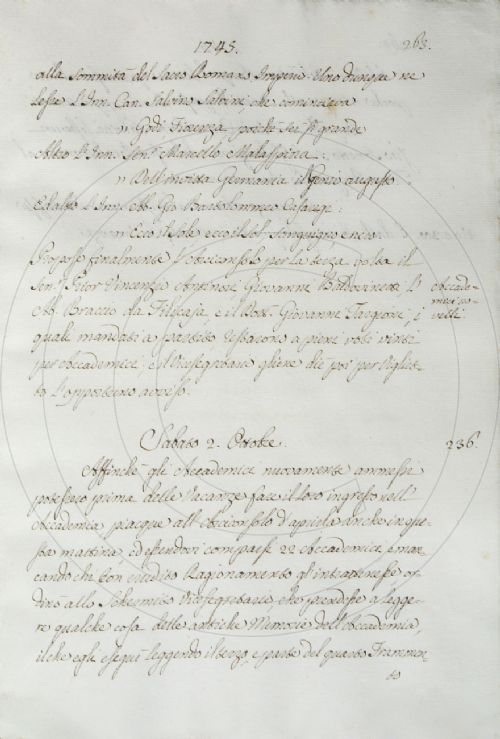 1745.
263.
alla sommità del Sacro Romano Imperio. Uno dunque ne
lesse l'Inn. Can. Salvino Salvini, che cominciava
" Godi Fiorenza poiché sei sì grande
Altro l'Inn. Sen.re Marcello Malaspina
" Dell'invitta Germania il Genio augusto
E l'altro l'Inn. Ab. Gio Bartolommeo Casaregi:
" Ecco il Sole ecco il Sol
Propose finalmente l'Arciconsolo per la terza volta il
Sen.re Pier Vincenzio Antinori, Giovanni Baldovinetti, l'
Ab. Braccio da Filicaja, e il Dott. Giovanni Targioni, i
quali mandati a partito restarono a pieni voti vinti
per Accademici, e il Vicesegretario ghiene diè poi per vigliet-
to l'opportuno avviso.
Accade-
mici no-
velli.
Sabato 2. Ottobre.
236.
Affinché gli Accademici nuovamente ammessi
potessero prima delle Vacanze fare il loro ingresso nell'
Accademia piacque all'Arciconsolo d'aprirla anche in que-
sta mattina, ed essendovi comparsi 22 Accademici, e man-
cando chi con erudito Ragionamento gl'intrattenesse or-
dinò allo Schermito Vicesegretario, che prendesse a legge-
re qualche cosa delle antiche Memorie dell'Accademia,
il che egli eseguì leggendo il terzo, e parte del quarto Frammen-
to